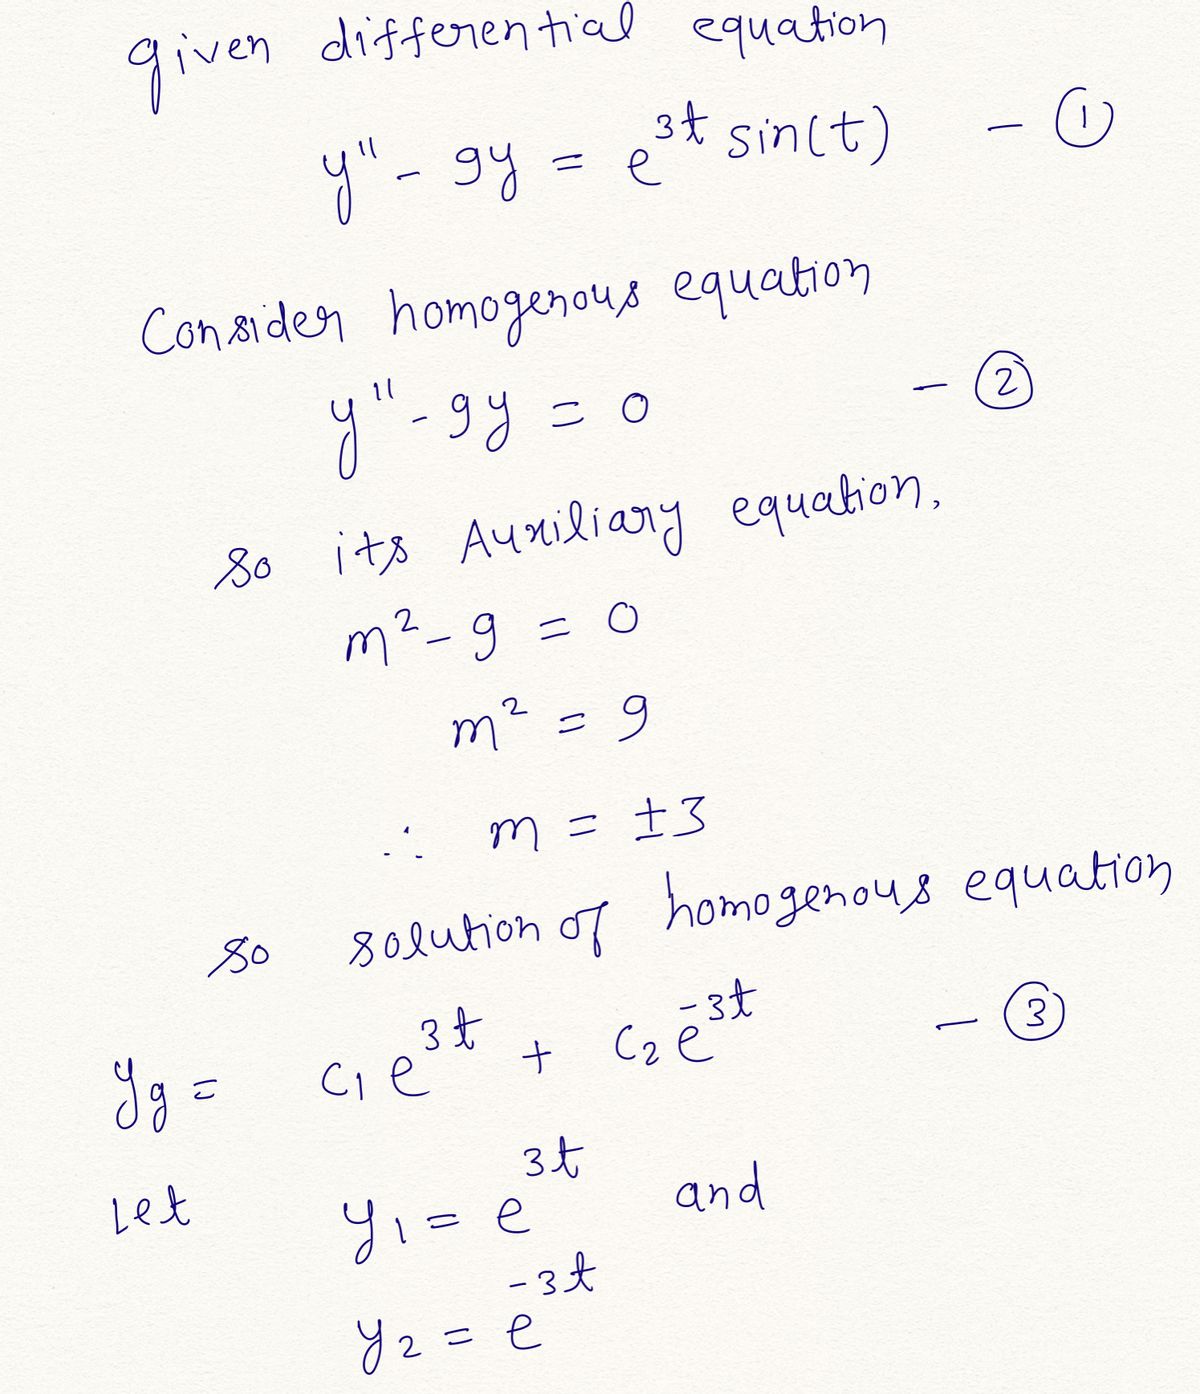 given differential equation
y'' - 9y = e^{3t} sin(t) - ①
Consider homogenous equation
y'' - 9y = 0 - ②
so its Auxiliary equation,
m² - 9 = 0
m² = 9
∴ m = ±3
so solution of homogenous equation
y_g = c₁e^{3t} + c₂e^{-3t} - ③
Let y₁ = e^{3t} and
y₂ = e^{-3t}